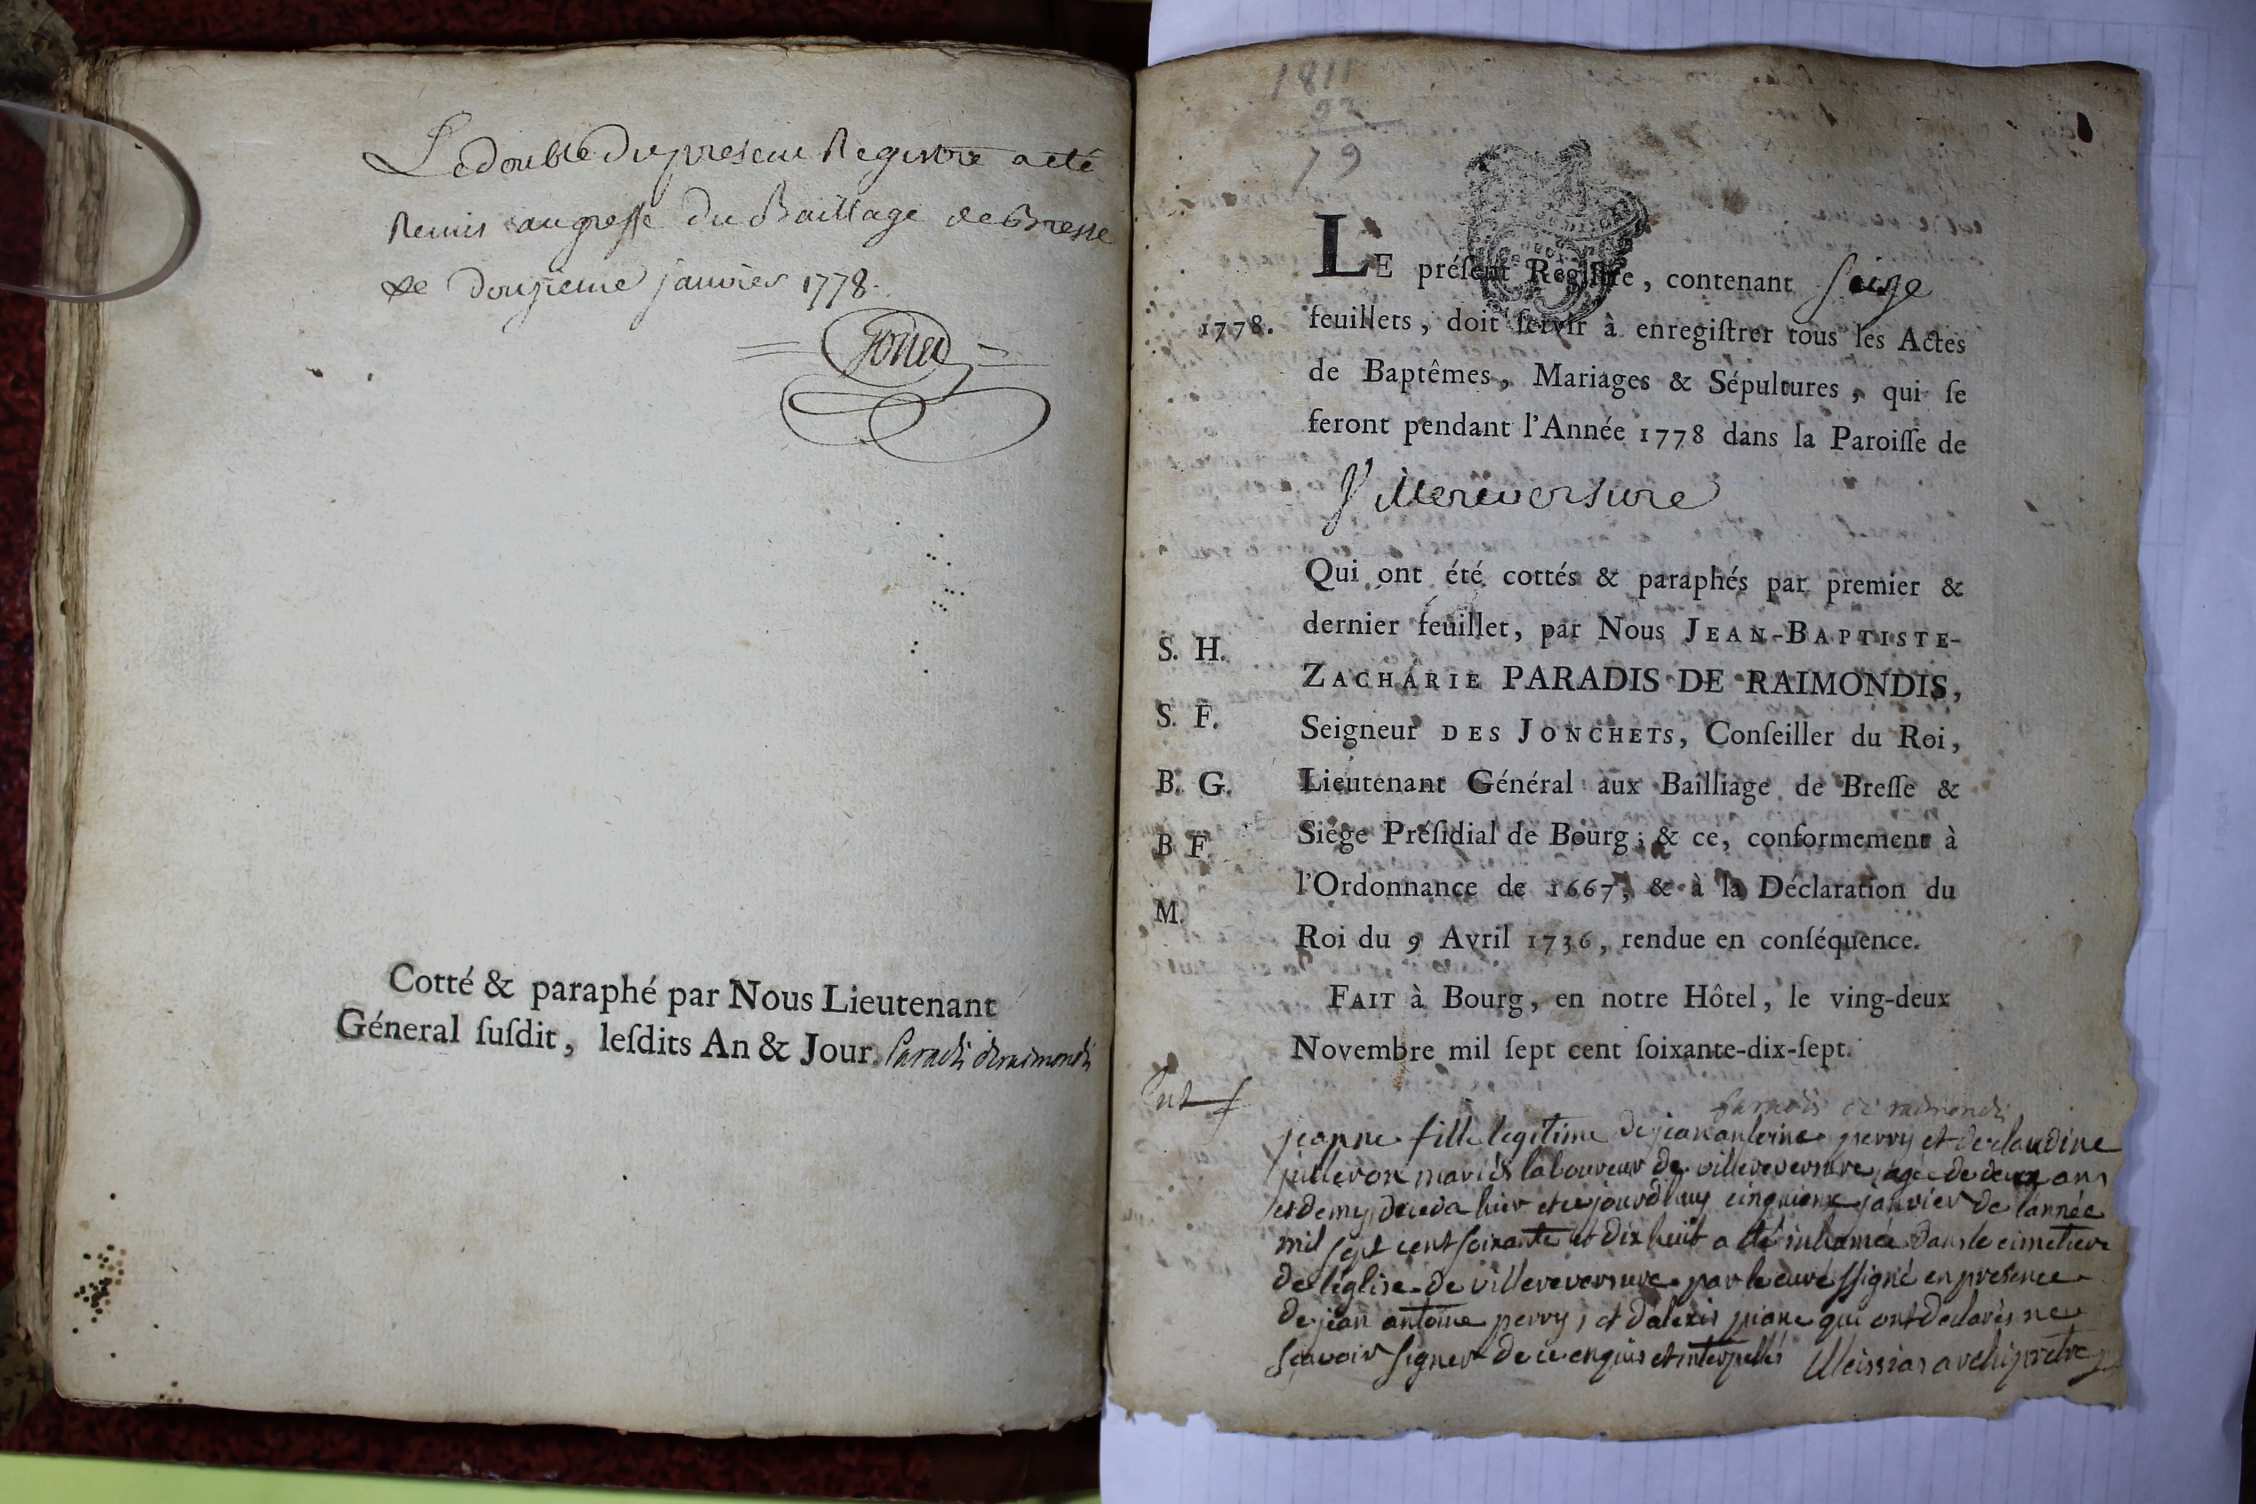 Le double du present Registre a eté
Remis au greffe du Baillage de Bresse
le douzieme janvier 1778.
Cotté & paraphé par Nous Lieutenant
Géneral ſuſdit, leſdits An & Jour. Paradis deraimondis
1811
92
79
LE préſent Regiſtre, contenant seize
1778.
feuillets, doit ſervir à enregiſtrer tous les Actes
de Baptêmes, Mariages & Sépultures, qui ſe
feront pendant l'Année 1778 dans la Paroiſſe de
Villereversure
Qui ont été cottés & paraphés par premier &
dernier feuillet, par Nous JEAN-BAPTISTE-
S. H.
ZACHARIE PARADIS DE RAIMONDIS,
S. F.
Seigneur DES JONCHETS, Conſeiller du Roi,
B. G.
Lieutenant Général aux Bailliage de Breſſe &
B F.
Siége Préſidial de Bourg; & ce, conformement à
l'Ordonnance de 1667, & à la Déclaration du
M.
Roi du 9 Avril 1736, rendue en conſéquence.
FAIT à Bourg, en notre Hôtel, le ving-deux
Novembre mil ſept cent ſoixante-dix-ſept.
Paradis de raimondis
jeanne fille legitime de jean antoine perry et de claudine
juilleron mariés laboureur de villereversure agée de deux ans
et demy, deceda hier et ce jourdhuy cinquieme janvier de l'année
mil sept cent soixante et dix huit a été inhumée dans le cimetiere
de l'église de villereversure par le curé ssigné en presence
de jean antoine perry, et d'alexis piane qui ont declarés ne
scavoir signer de ce enquis et interpellés Meissias archiprètre